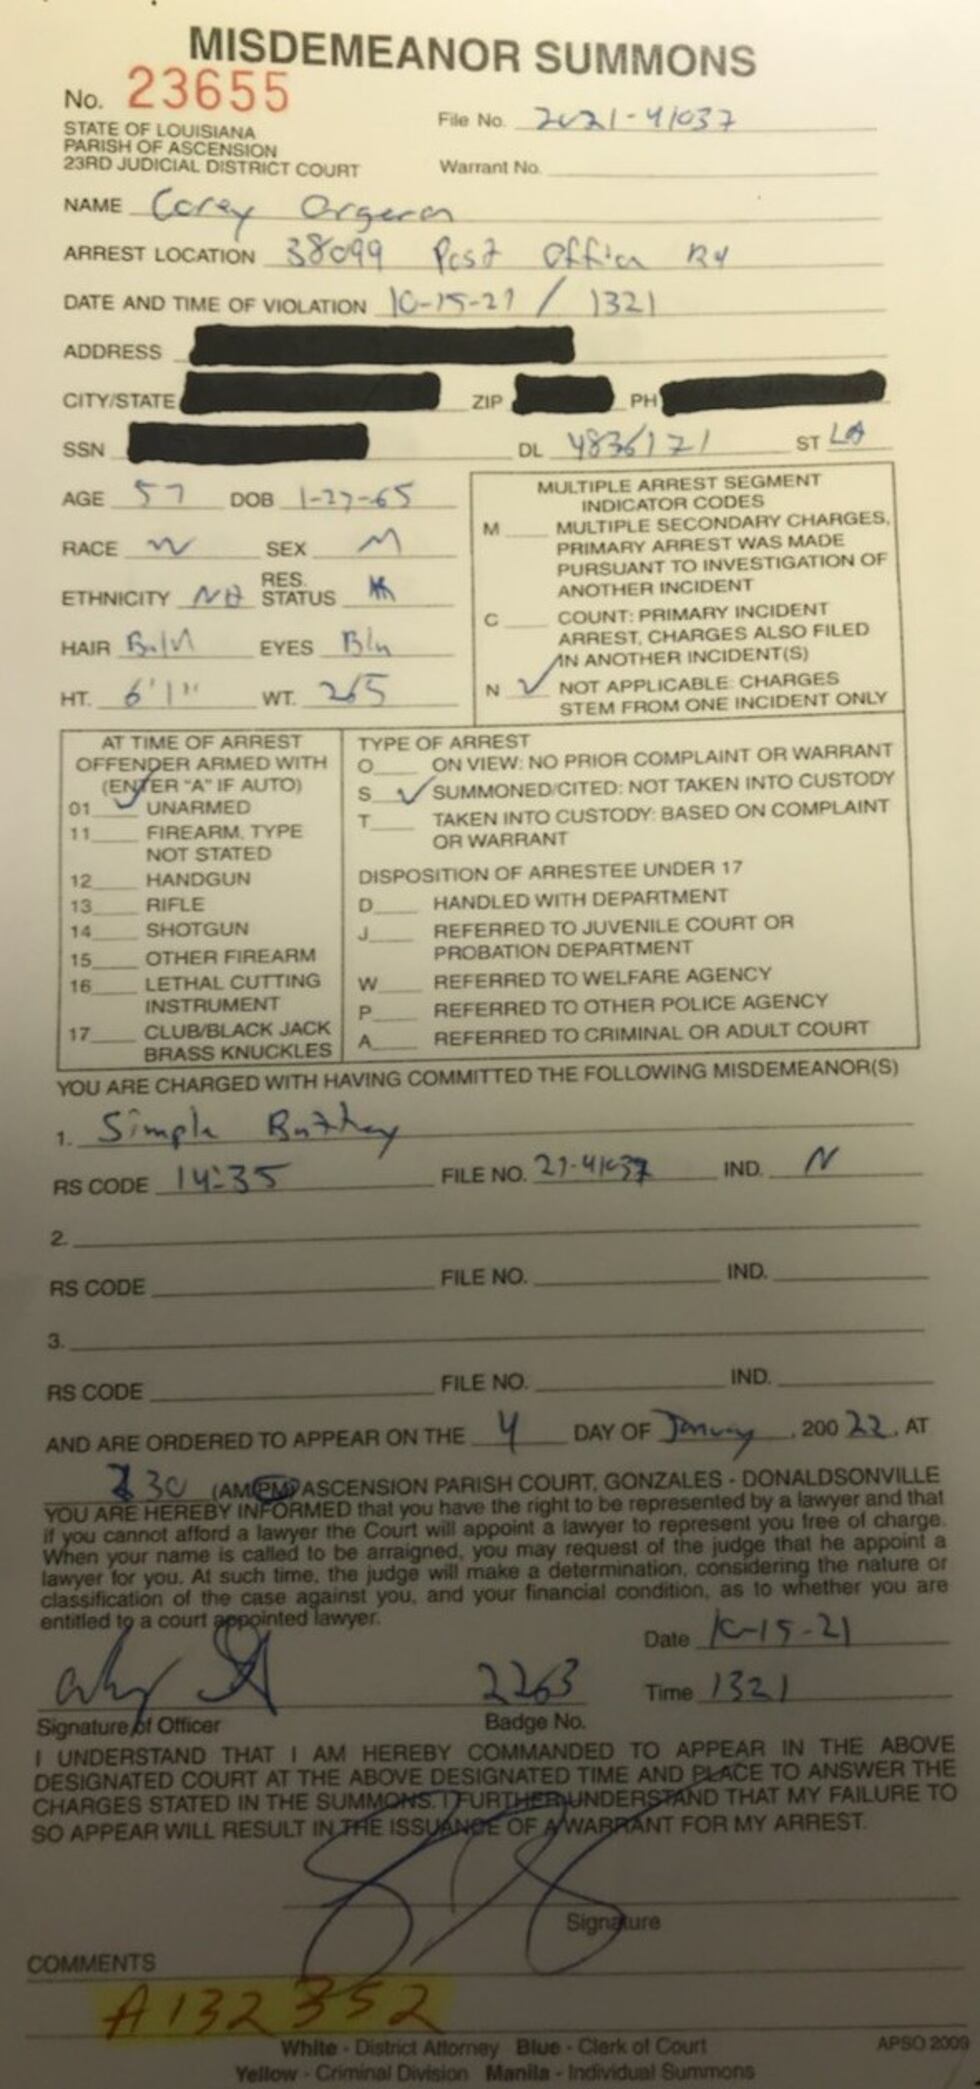 MISDEMEANOR SUMMONS
No. 23655
File No. 2021-41037
STATE OF LOUISIANA
PARISH OF ASCENSION
23RD JUDICIAL DISTRICT COURT
Warrant No.
NAME Corey Orgeron
ARREST LOCATION 38099 Post Office Rd
DATE AND TIME OF VIOLATION 10-15-21 / 1321
ADDRESS
CITY/STATE ZIP PH
SSN DL 4836121 ST LA
AGE 57 DOB 1-27-65
RACE W SEX M
ETHNICITY NH RES. STATUS
HAIR Bald EYES Blu
HT. 6'1" WT. 265
MULTIPLE ARREST SEGMENT
INDICATOR CODES
M MULTIPLE SECONDARY CHARGES,
PRIMARY ARREST WAS MADE
PURSUANT TO INVESTIGATION OF
ANOTHER INCIDENT
C COUNT: PRIMARY INCIDENT
ARREST, CHARGES ALSO FILED
IN ANOTHER INCIDENT(S)
N ✓ NOT APPLICABLE: CHARGES
STEM FROM ONE INCIDENT ONLY
AT TIME OF ARREST
OFFENDER ARMED WITH
(ENTER "A" IF AUTO)
01 ✓ UNARMED
11 FIREARM, TYPE
NOT STATED
12 HANDGUN
13 RIFLE
14 SHOTGUN
15 OTHER FIREARM
16 LETHAL CUTTING
INSTRUMENT
17 CLUB/BLACK JACK
BRASS KNUCKLES
TYPE OF ARREST
O ON VIEW: NO PRIOR COMPLAINT OR WARRANT
S ✓ SUMMONED/CITED: NOT TAKEN INTO CUSTODY
T TAKEN INTO CUSTODY: BASED ON COMPLAINT
OR WARRANT
DISPOSITION OF ARRESTEE UNDER 17
D HANDLED WITH DEPARTMENT
J REFERRED TO JUVENILE COURT OR
PROBATION DEPARTMENT
W REFERRED TO WELFARE AGENCY
P REFERRED TO OTHER POLICE AGENCY
A REFERRED TO CRIMINAL OR ADULT COURT
YOU ARE CHARGED WITH HAVING COMMITTED THE FOLLOWING MISDEMEANOR(S)
1. Simple Battery
RS CODE 14:35 FILE NO. 21-41037 IND. N
2.
RS CODE FILE NO. IND.
3.
RS CODE FILE NO. IND.
AND ARE ORDERED TO APPEAR ON THE 4 DAY OF January, 200 22, AT
30 (AM/PM) ASCENSION PARISH COURT, GONZALES - DONALDSONVILLE
YOU ARE HEREBY INFORMED that you have the right to be represented by a lawyer and that
if you cannot afford a lawyer the Court will appoint a lawyer to represent you free of charge.
When your name is called to be arraigned, you may request of the judge that he appoint a
lawyer for you. At such time, the judge will make a determination, considering the nature or
classification of the case against you, and your financial condition, as to whether you are
entitled to a court appointed lawyer.
Date 10-15-21
2263 Time 1321
Signature of Officer Badge No.
I UNDERSTAND THAT I AM HEREBY COMMANDED TO APPEAR IN THE ABOVE
DESIGNATED COURT AT THE ABOVE DESIGNATED TIME AND PLACE TO ANSWER THE
CHARGES STATED IN THE SUMMONS. I FURTHER UNDERSTAND THAT MY FAILURE TO
SO APPEAR WILL RESULT IN THE ISSUANCE OF A WARRANT FOR MY ARREST.
Signature
COMMENTS
A132352
White - District Attorney Blue - Clerk of Court APSO 2009
Yellow - Criminal Division Manila - Individual Summons